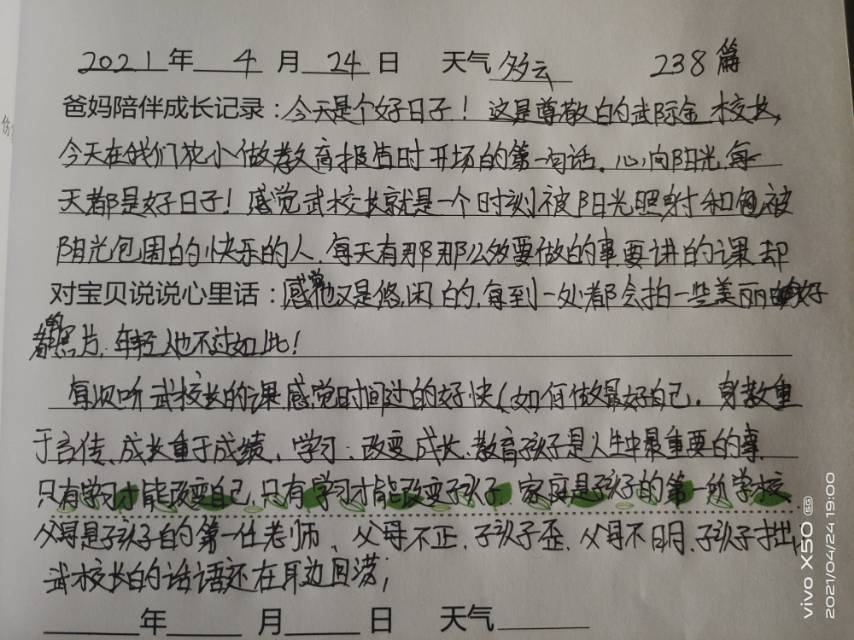 2021年 4 月 24 日 天气 多云 238篇
爸妈陪伴成长记录：今天是个好日子！这是尊敬的武际金校长，
今天在我们做教育报告时开场的第一句话。心向阳光，每一
天都是好日子！感觉武校长就是一个时刻被阳光照射和包被
阳光包围的快乐的人，每天有那那么多要做的事要讲的课却
对宝贝说说心里话：感觉他又是悠闲的，每到一处都会拍一些美丽好
照片，年轻人也不过如此！
每次听武校长的课感觉时间过的好快（如何做最好自己，身教重
于言传，成长重于成绩，学习：改变成长，教育孩子是人生中最重要的事
只有学习才能改变自己，只有学习才能改变孩子 家庭是孩子的第一所学校
父母是孩子的第一任老师、父母不正，孩子歪，父母不明，孩子拙，
武校长的话语还在耳边回荡；
年 月 日 天气
vivo X50 5G
2021/04/24 19:00